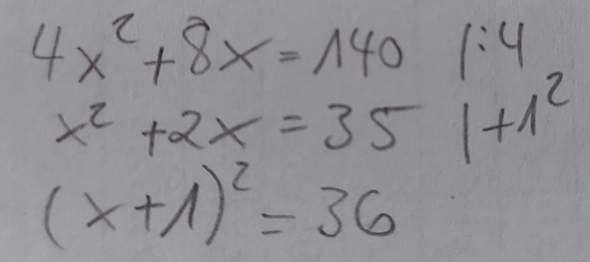 4x² + 8x = 140 |:4
x² + 2x = 35 |+1²
(x+1)² = 36